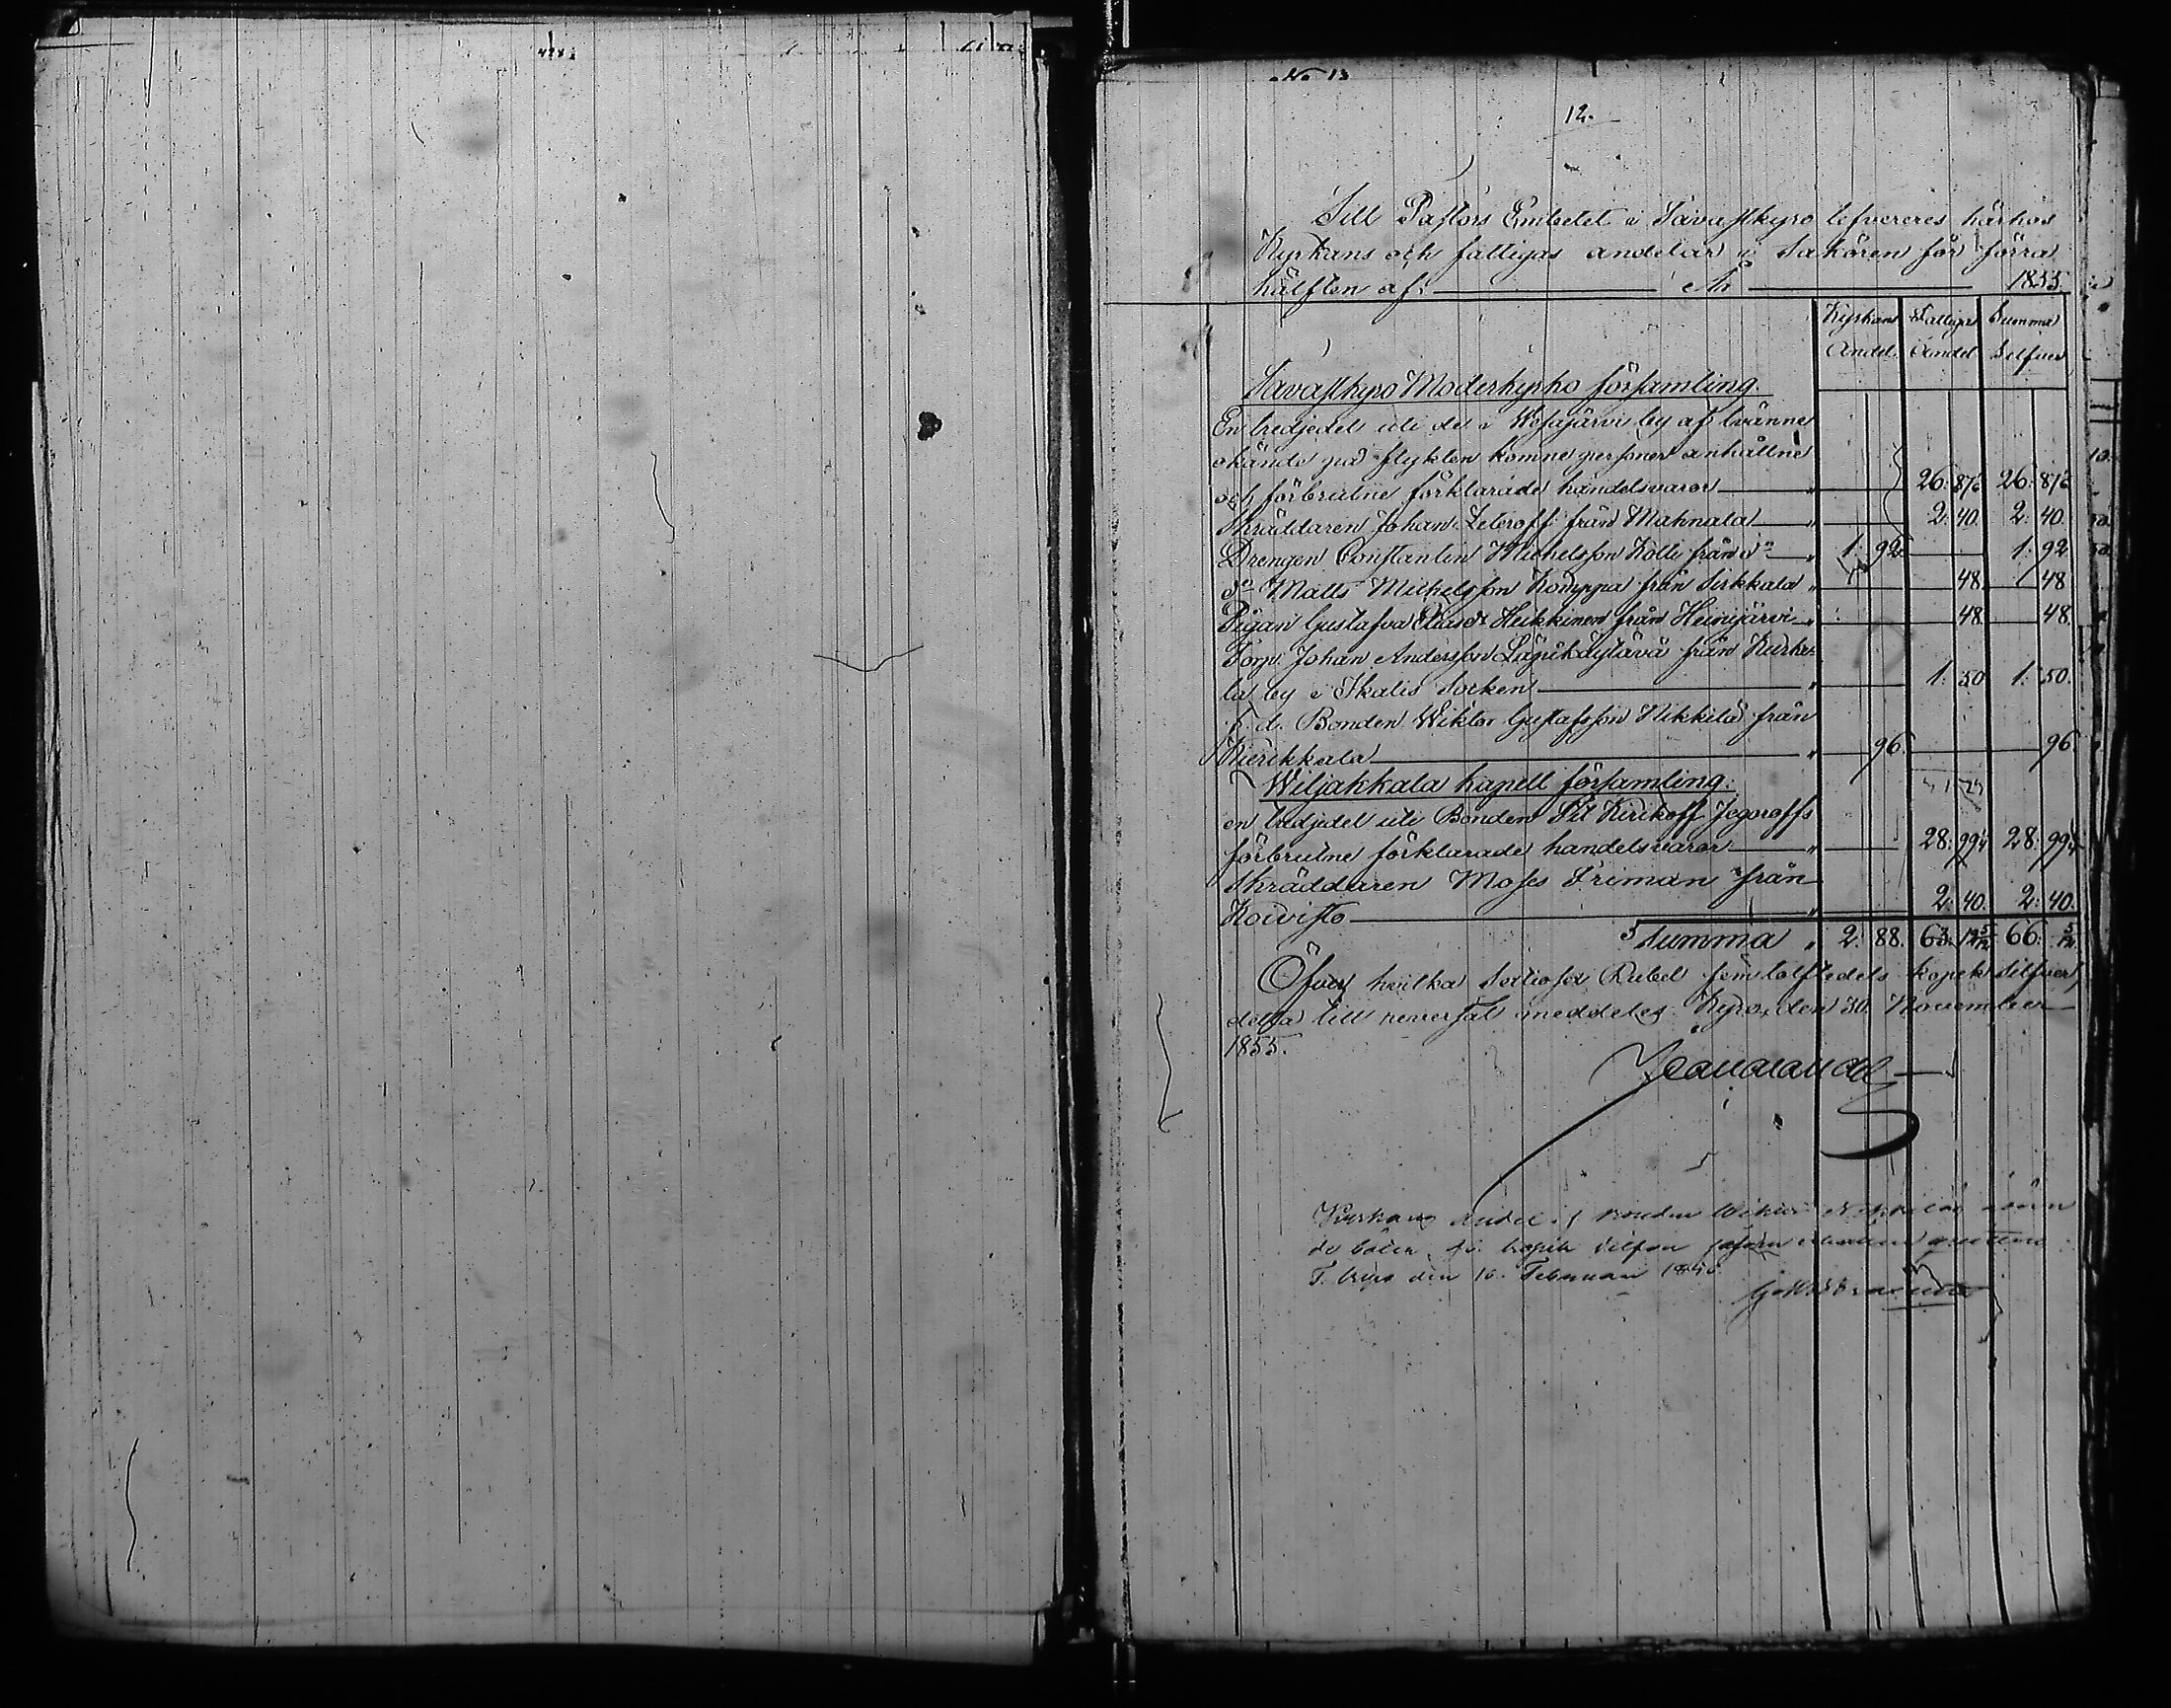 No 13
12.
Till Pastors Embetet i Tavastkyro lefvereres härhos
Kyrkans och fattigas andelar i Saköron för förra
hälften af: År 1855.
Kyrkans Fattigas Summa
Andel. Andel Silfver
Tavastkyro Moderkyrko församling.
En tredjedel uti de i Wesajärvi by af tvänne
okände på flykten komne personer anhållne
och förbrutne förklarade handelsvaror " 26. 87 26. 87
Skräddaren Johan Zeteroff från Mahnala " 2. 40. 2. 40.
Drengen Constantin Michelsson Kolli från do " 1. 92. 1. 92
do Matts Michelsson Komppa från Sirkkala " 48. 48
Pigan Gustafva Eliasdr Heikkinen från Heinijärvi " 48. 48
Torp. Johan Andersson från Kurke-
la by i Ikalis Socken " 1. 50 1. 50.
f. d. Bonden Wiktor Gustafsson Nikkilä från
Kierikkala " 96. 96.
Wiljakkala kapell församling.
en tredjedel uti Bonden Kirikoff Jegoroffs
förbrutne förklarade handelsvaror " 28. 99 28. 99
Skräddaren Moses Friman från
Koivisto " 2. 40. 2. 40.
Summa " 2. 88. 63. 12 5/12 66. 5/12.
Öfver hvilka Sextiosex Rubel fem tolftedels kopek Silfver,
detta till reversal meddeles. Kyro, den 30. November
1855.
Kyrkans Andel i Bonden Wiktor Nikkiläs
kopek Silfver
T. Kyro den 16. Februari